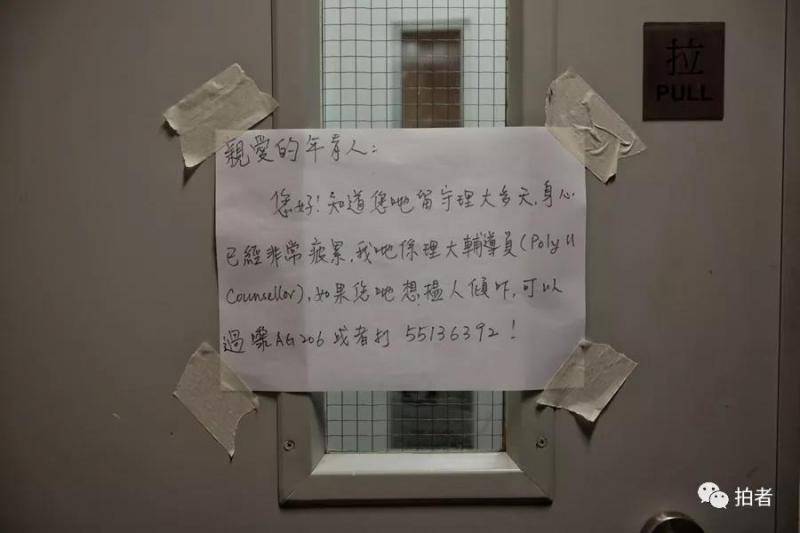 拉
PULL
親愛的年青人：
您好！知道您哋留守理大多天，身心
已經非常疲累，我哋係理大輔導員（PolyU
Counsellor），如果您哋想搵人傾吓，可以
過嚟AG206或者打 55136392！
拍者